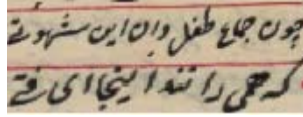 چون جماع طفل دان این شهوتی
که همی رانند اینجا ای فتی